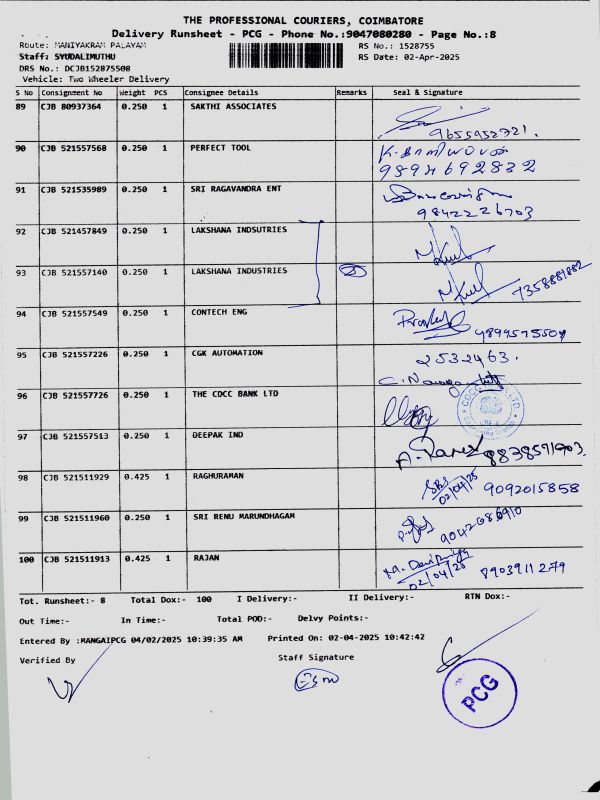 THE PROFESSIONAL COURIERS, COIMBATORE
Delivery Runsheet - PCG - Phone No.:9047080280 - Page No.:8
Route: MANIYAKRAM PALAYAM
RS No.: 1528755
Staff: SYUDALIMUTHU
RS Date: 02-Apr-2025
DRS No.: DCJB152875508
Vehicle: Two Wheeler Delivery
S No Consignment No Weight PCS Consignee Details Remarks Seal & Signature
89 CJB 80937364 0.250 1 SAKTHI ASSOCIATES
9655952721.
90 CJB 521557568 0.250 1 PERFECT TOOL
9894692832
91 CJB 521535989 0.250 1 SRI RAGAVANDRA ENT
9842226703
92 CJB 521457849 0.250 1 LAKSHANA INDSUTRIES
93 CJB 521557140 0.250 1 LAKSHANA INDUSTRIES
7358881882
94 CJB 521557549 0.250 1 CONTECH ENG
95 CJB 521557226 0.250 1 CGK AUTOMATION 2532463.
96 CJB 521557726 0.250 1 THE CDCC BANK LTD
97 CJB 521557513 0.250 1 DEEPAK IND
8838591903.
98 CJB 521511929 0.425 1 RAGHURAMAN
02/04/25 9092015858
99 CJB 521511960 0.250 1 SRI RENU MARUNDHAGAM
100 CJB 521511913 0.425 1 RAJAN
02/04/25 8903911279
Tot. Runsheet:- 8 Total Dox:- 100 I Delivery:- II Delivery:- RTN Dox:-
Out Time:- In Time:- Total POD:- Delvy Points:-
Entered By :MANGAIPCG 04/02/2025 10:39:35 AM Printed On: 02-04-2025 10:42:42
Verified By Staff Signature
PCG